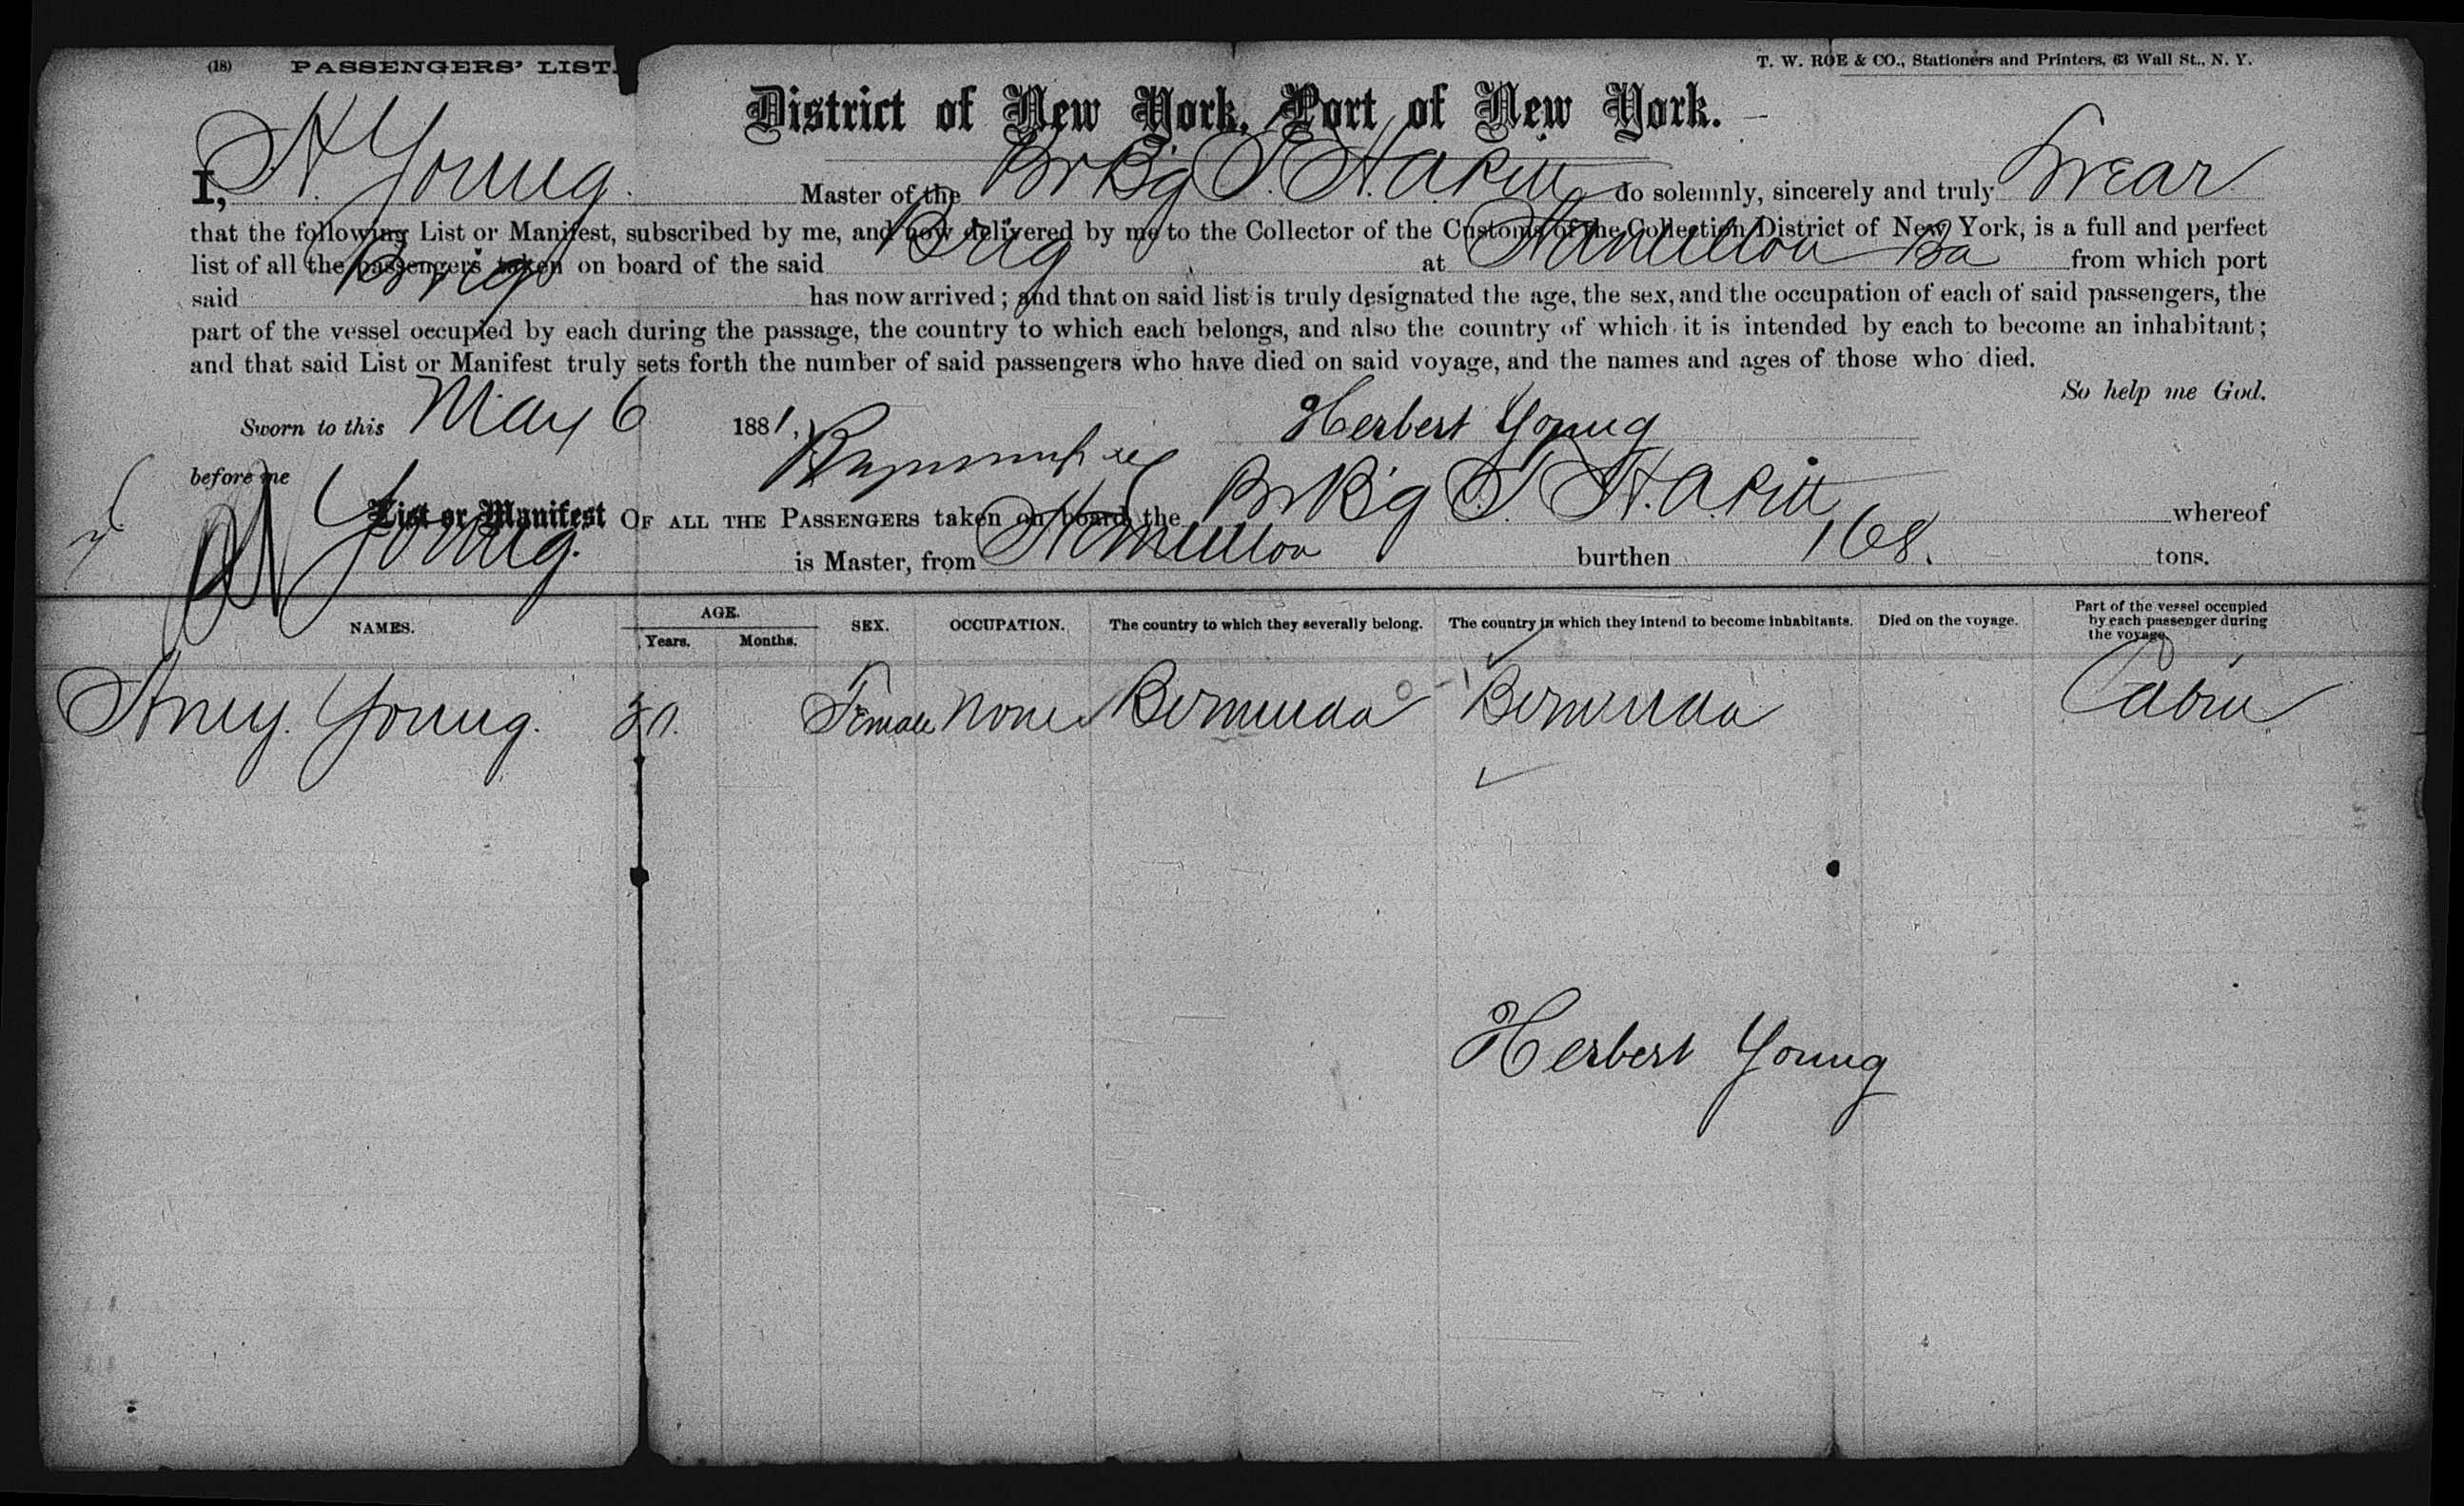 (18) PASSENGERS' LIST.
T. W. ROE & CO., Stationers and Printers, 63 Wall St., N. Y.
District of New York, Port of New York.
I, H. Young Master of the Br Bg T. H. A. Pitt do solemnly, sincerely and truly Swear
that the following List or Manifest, subscribed by me, and now delivered by me to the Collector of the Customs of the Collection District of New York, is a full and perfect
list of all the passengers taken on board of the said Brig at Hamilton Ba from which port
said Brig has now arrived; and that on said list is truly designated the age, the sex, and the occupation of each of said passengers, the
part of the vessel occupied by each during the passage, the country to which each belongs, and also the country of which it is intended by each to become an inhabitant;
and that said List or Manifest truly sets forth the number of said passengers who have died on said voyage, and the names and ages of those who died.
So help me God.
Sworn to this May 6 1881, Herbert Young
before me
List or Manifest OF ALL THE PASSENGERS taken on board the Br Bg T. H. A. Pitt whereof
H Young. is Master, from Hamilton burthen 168. tons.
NAMES. AGE. Years. Months. SEX. OCCUPATION. The country to which they severally belong. The country in which they intend to become inhabitants. Died on the voyage. Part of the vessel occupied by each passenger during the voyage.
Young. Female none Bermuda Bermuda Cabin
Herbert Young